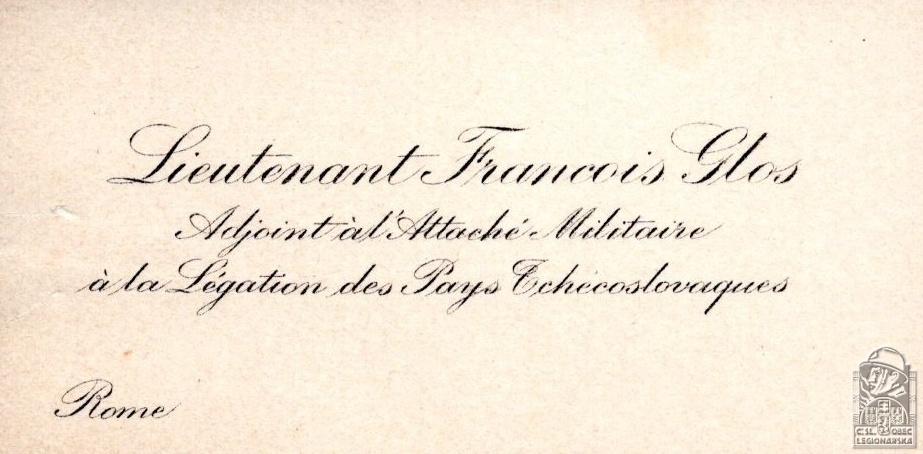 Lieutenant Francois Glos
Adjoint à l'Attaché Militaire
à la Légation des Pays Tchécoslovaques
Rome
ČSL. OBEC
LEGIONÁŘSKÁ